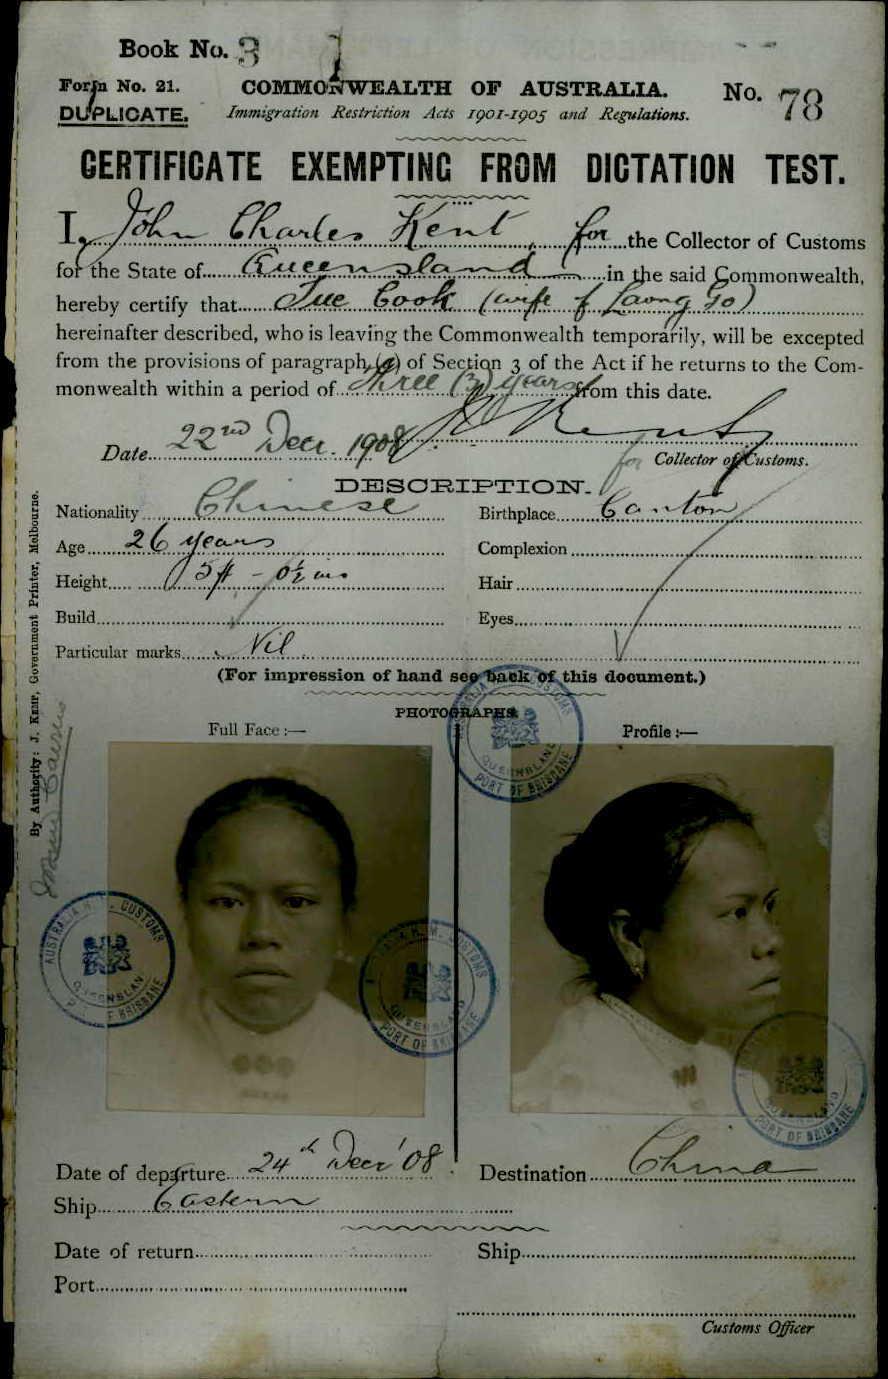 Book No. 3
Form No. 21.
DUPLICATE.
COMMONWEALTH OF AUSTRALIA.
Immigration Restriction Acts 1901-1905 and Regulations.
No. 78
CERTIFICATE EXEMPTING FROM DICTATION TEST.
I, John Charles Kent, for the Collector of Customs
for the State of Queensland in the said Commonwealth,
hereby certify that Sue Cook (wife of Go)
hereinafter described, who is leaving the Commonwealth temporarily, will be excepted
from the provisions of paragraph (a) of Section 3 of the Act if he returns to the Com-
monwealth within a period of three (3) years from this date.
Date 22nd Decr. 1908 Kent
for Collector of Customs.
DESCRIPTION.
Nationality Chinese
Birthplace Canton
Age 26 years
Complexion
Height 5 ft - 0½ ins
Hair
Build
Eyes
Particular marks Nil
(For impression of hand see back of this document.)
PHOTOGRAPHS
Full Face :—
Profile :—
By Authority: J. KEMP, Government Printer, Melbourne.
Cairns
AUSTRALIA H. M. CUSTOMS
QUEENSLAND
PORT OF BRISBANE
AUSTRALIA H. M. CUSTOMS
QUEENSLAND
PORT OF BRISBANE
AUSTRALIA H. M. CUSTOMS
QUEENSLAND
PORT OF BRISBANE
QUEENSLAND
PORT OF BRISBANE
Date of departure 24th Decr '08
Destination China
Ship Eastern
Date of return
Ship
Port
Customs Officer